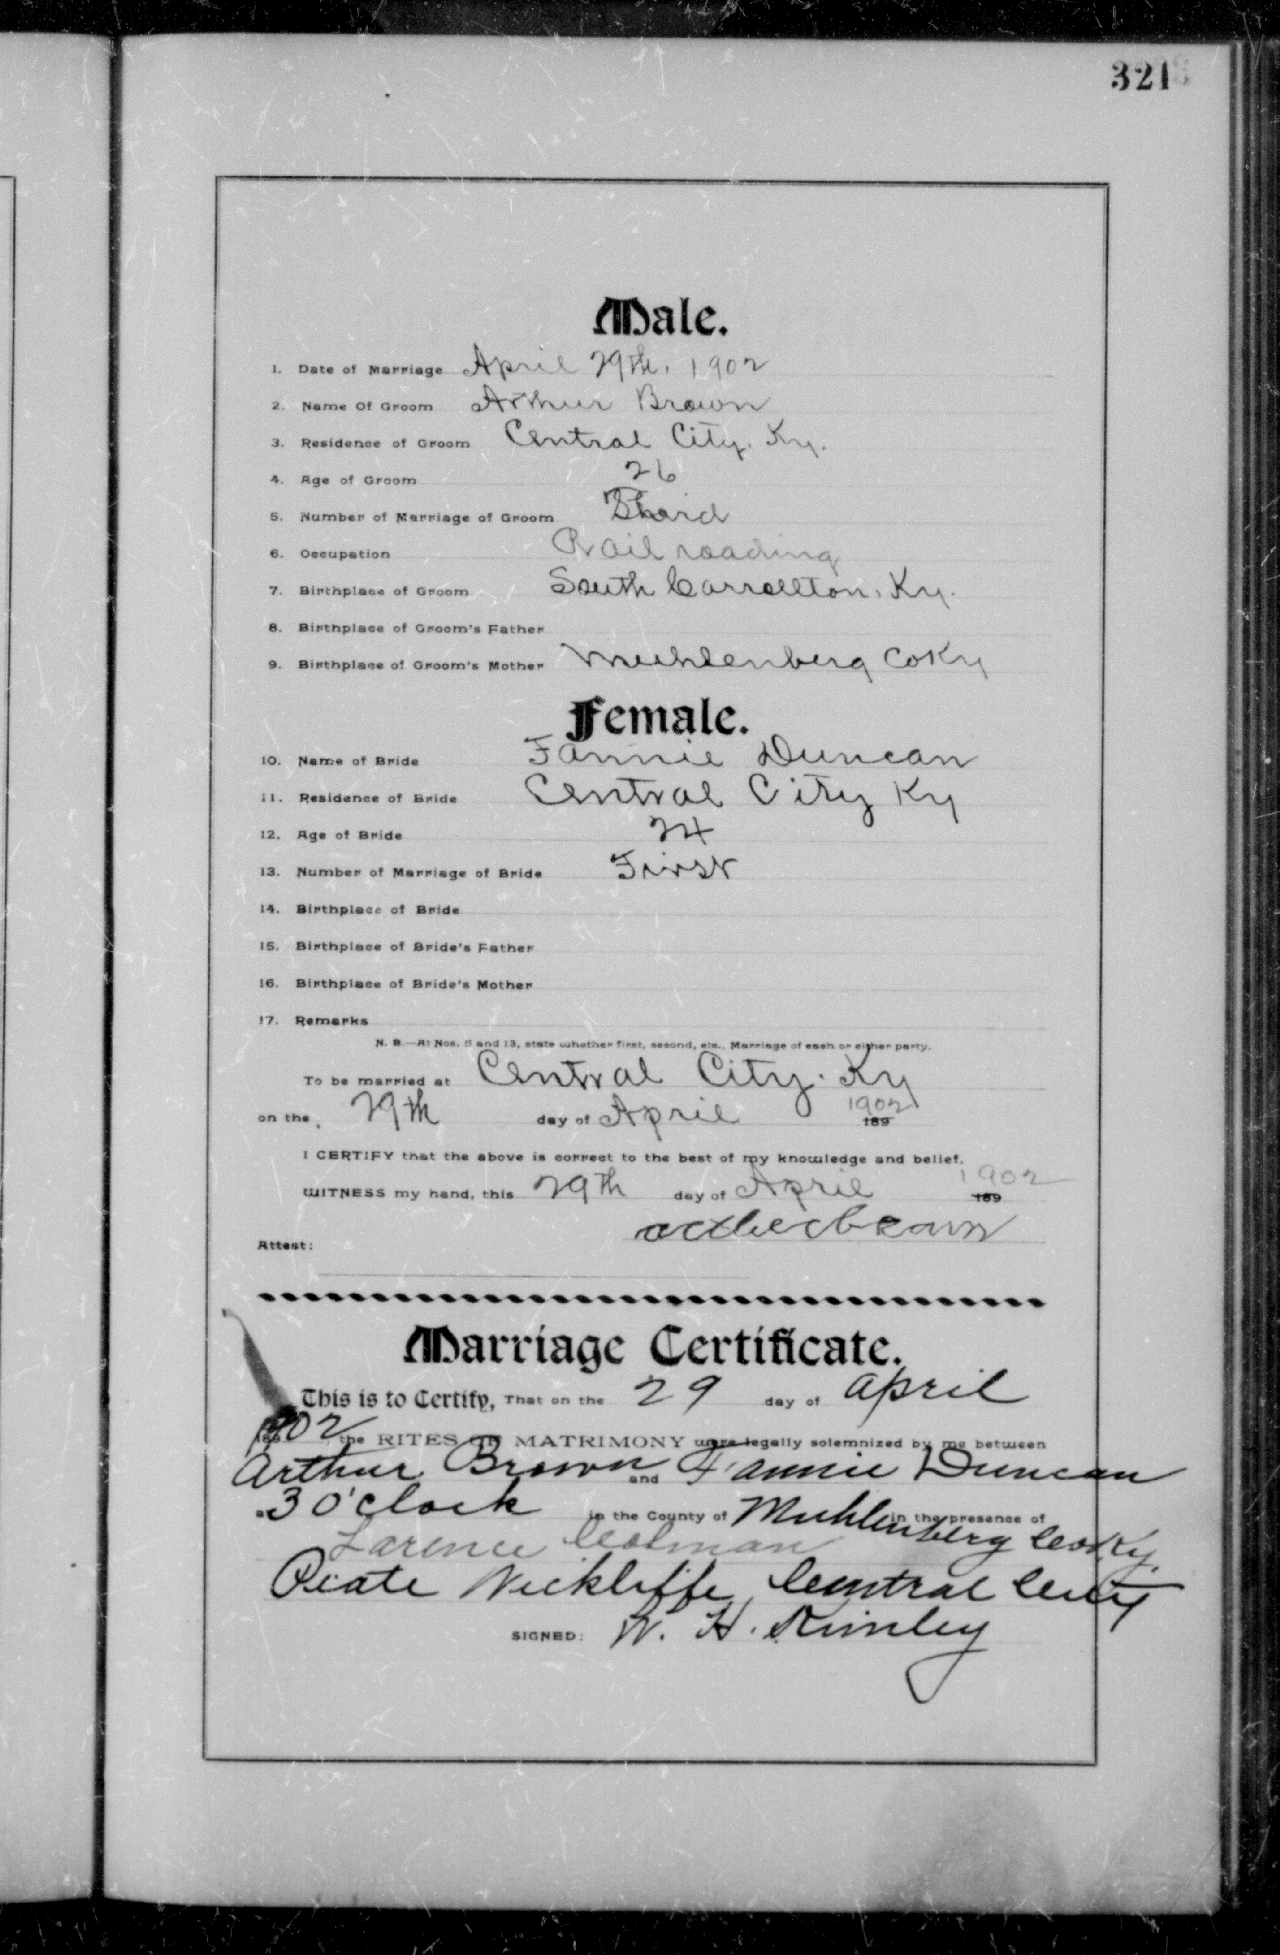 321
Male.
1. Date of Marriage April 29th, 1902
2. Name Of Groom Arthur Brown
3. Residence of Groom Central City. Ky.
4. Age of Groom 26
5. Number of Marriage of Groom Third
6. Occupation Rail roading
7. Birthplace of Groom South Carrollton, Ky.
8. Birthplace of Groom's Father
9. Birthplace of Groom's Mother Muhlenberg Co Ky
Female.
10. Name of Bride Fannie Duncan
11. Residence of Bride Central City Ky
12. Age of Bride 24
13. Number of Marriage of Bride First
14. Birthplace of Bride
15. Birthplace of Bride's Father
16. Birthplace of Bride's Mother
17. Remarks
N. B.—At Nos. 5 and 13, state whether first, second, etc., Marriage of each or either party.
To be married at Central City. Ky
on the 29th day of April 1902 189
I CERTIFY that the above is correct to the best of my knowledge and belief.
WITNESS my hand, this 29th day of April 1902 189
Attest:
Marriage Certificate.
This is to Certify, That on the 29 day of april
1902 the RITES OF MATRIMONY were legally solemnized by me between
Arthur Brown and Fannie Duncan
3 O'clock in the County of Muhlenberg Co Ky. in the presence of
Larence Colman
Wickliffe, Central City
SIGNED: W. H.